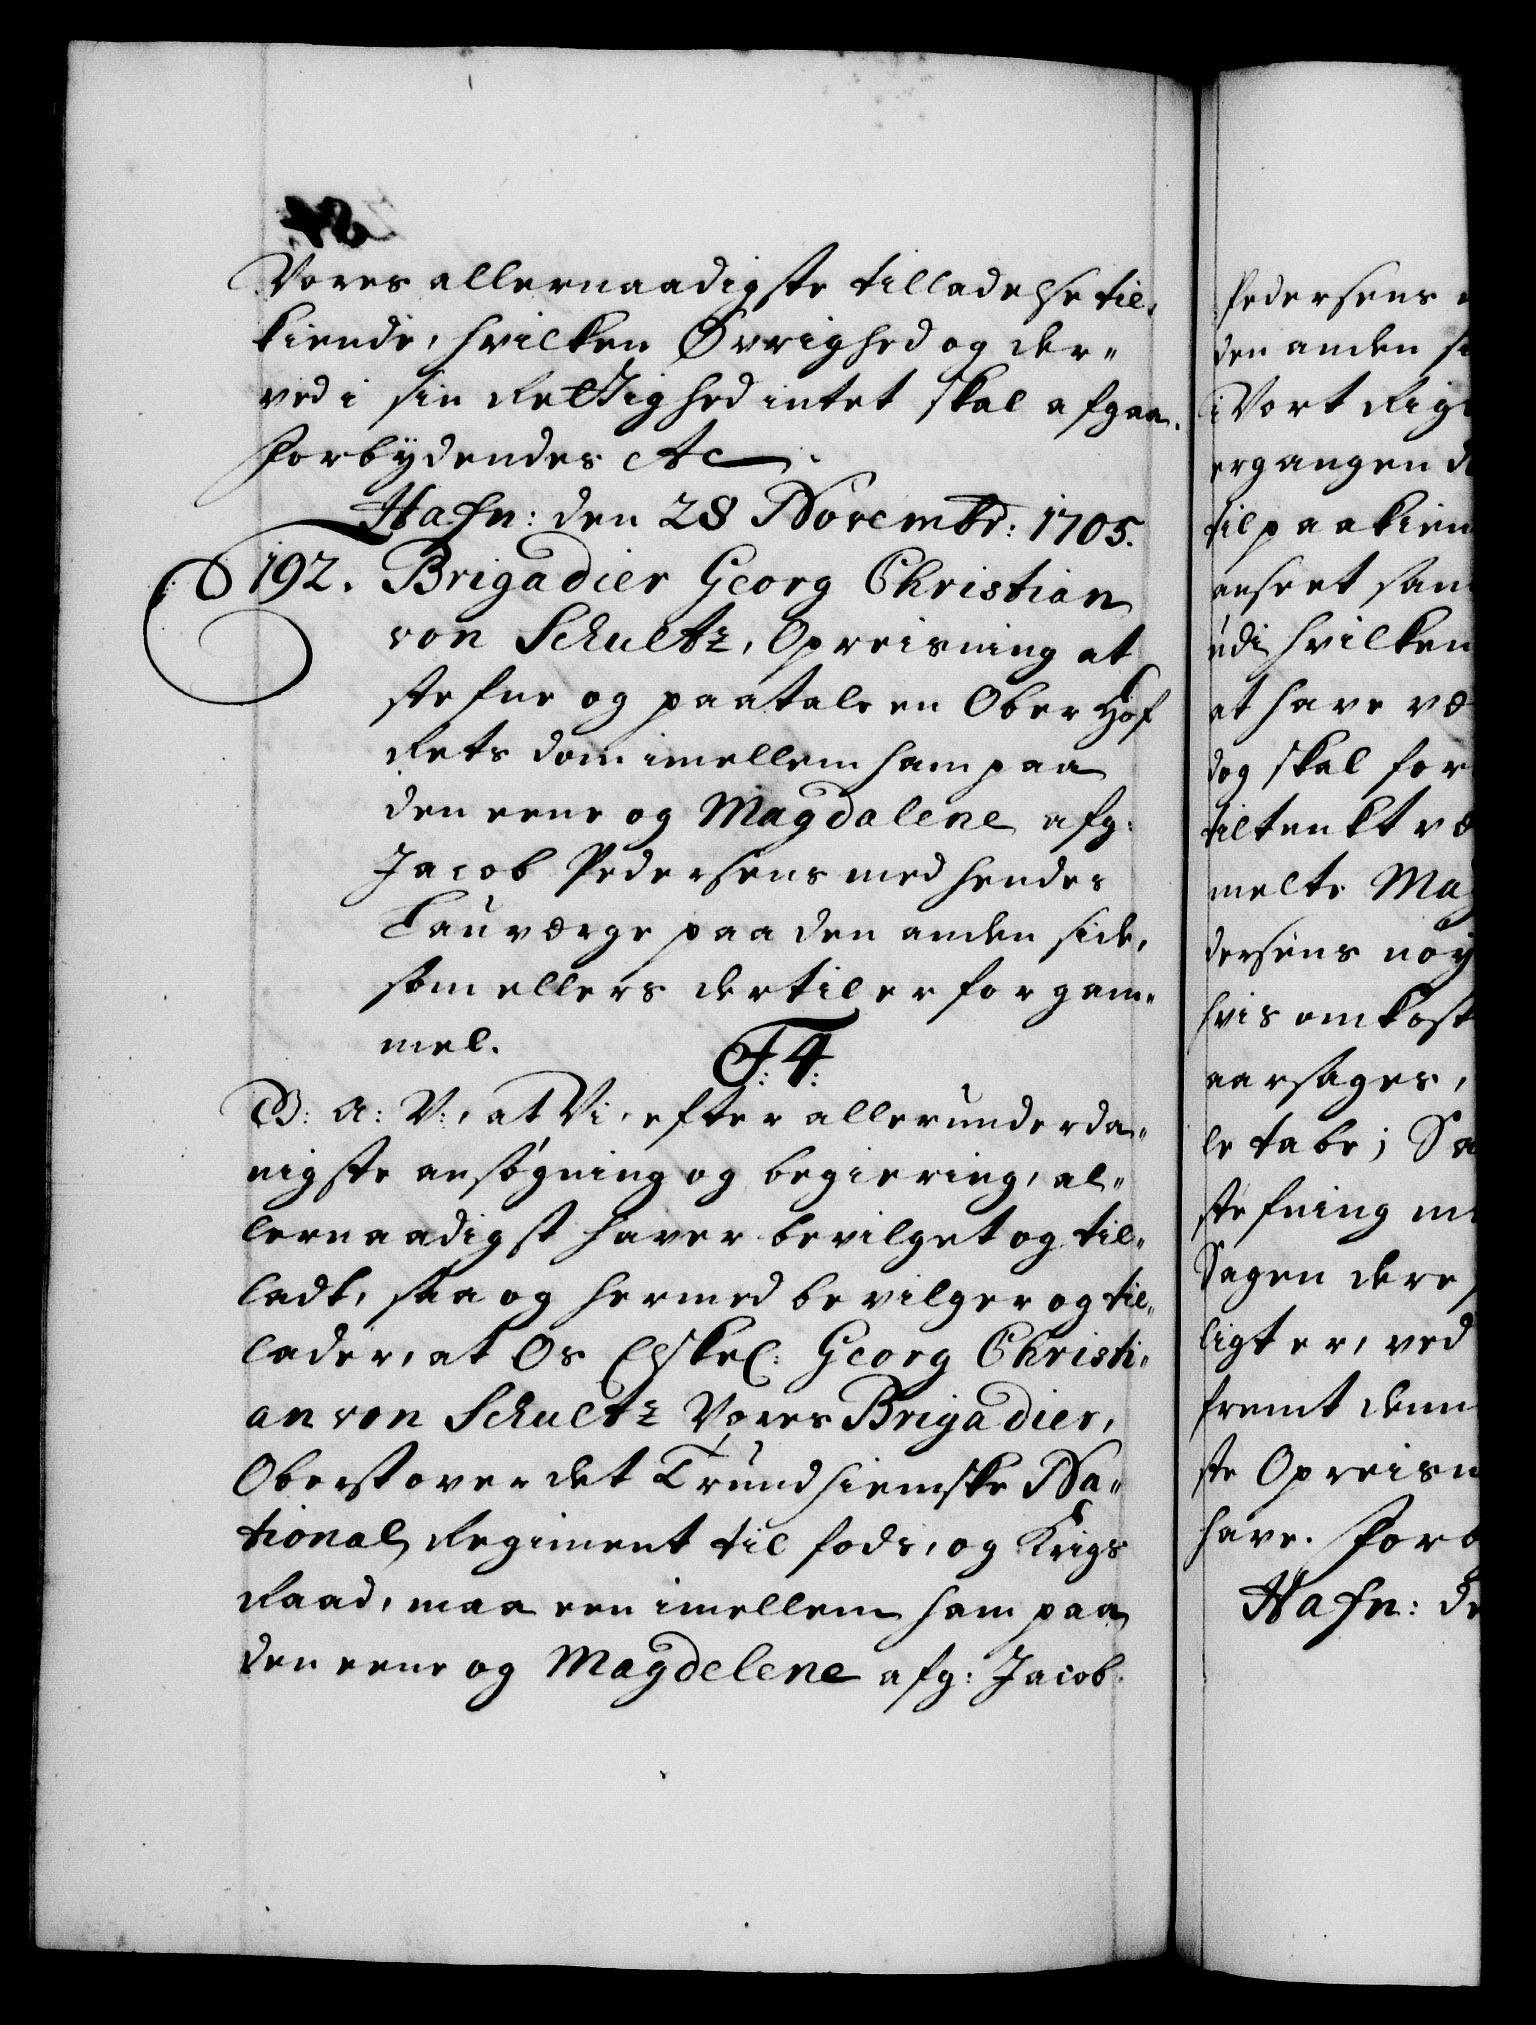 Vores allernaadigste tilladelse til,
kiende, hvilken Øvrighed og der„
ved i sin Rettighed intet skal afgaa.
Forbydendes etc
Hafn: den 28 Novembr: 1705.
192. Brigadier Georg Christian
von Schultz, Opreisning at
stefne og paatale en Ober Hof
Rets dom imellem ham paa
den eene og Magdalene afg:
Jacob Pedersens med hendes
Lauværge paa den anden side,
som ellers dertil er for gam„
mel.
F: 4:
G: A: V:, at Vi, efter allerunderda„
nigste ansøgning og begiering, al„
lernaadigst haver bevilget og til„
ladt, saa og hermed bevilger og til„
lader, at Os Elskel: Georg Christi„
an von Schultz Vores Brigadier,
Oberst over det Trundhiemske Na„
tional Regiment til fods, og Krigs
Raad, maa een imellem ham paa
den eene og Magdelene afg: Jacob
Pedersens
den anden si
i Vort Rige
ergangen d
til paakien
anseet sam
udi hvilken
at have væ
dog skal for
tiltenkt væ
melte Mag
dersens nøy
hvis omkost
aarsages,
le tabe; Sa
stefning m
Sagen dere
ligt er, ved
fremt denn
ste Opreisn
have. Forb
Hafn: de